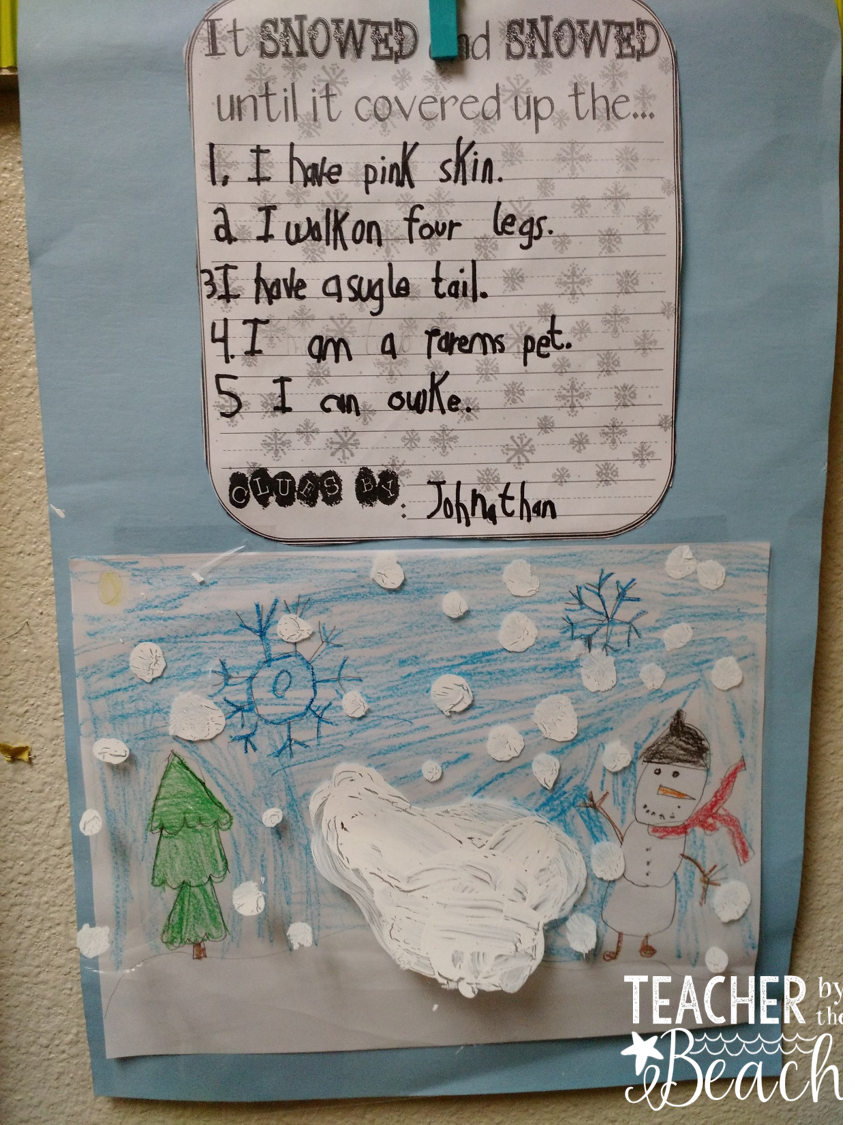 It SNOWED and SNOWED
until it covered up the...
1. I have pink skin.
2. I walk on four legs.
3 I have a sugle tail.
4. I am a farems pet.
5 I can owke.
CLUES BY: Johnathan
TEACHER by
the
Beach